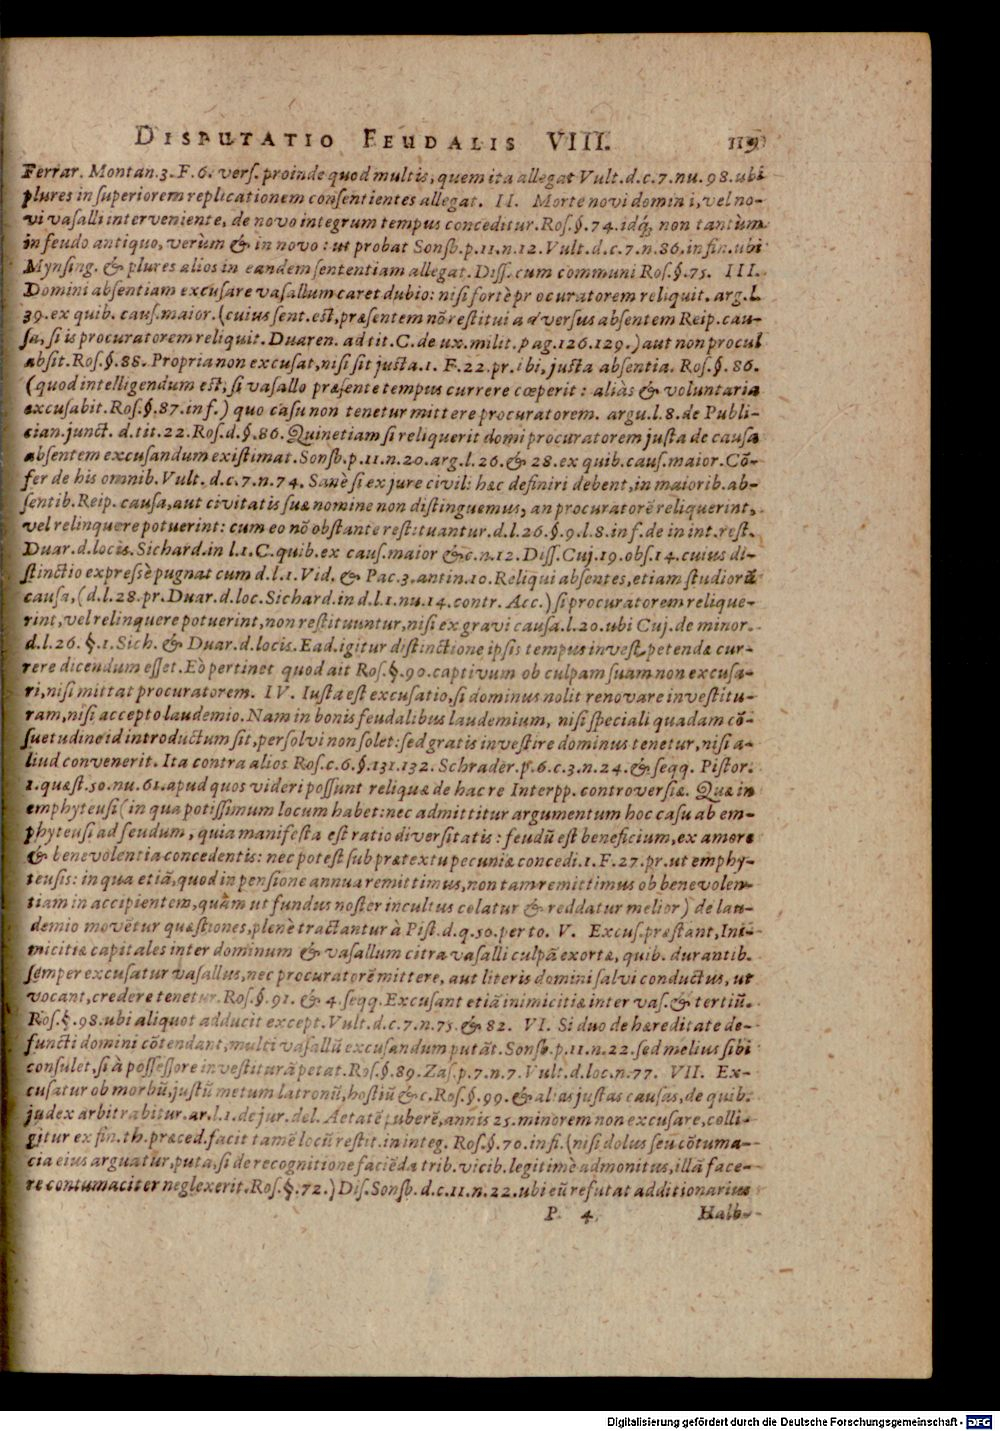 DISPUTATIO FEUDALIS VIII. 119
Ferrar. Montan. 3. F. 6. verſ. proinde quod multis, quem ita allegat Vult. d. c. 7. nu. 98. ubi
plures in ſuperiorem replicationem conſentientes allegat. II. Morte novi domini, vel no-
vi vaſalli interveniente, de novo integrum tempus conceditur. Roſ. §. 74. idq́, non tantùm
in feudo antiquo, verùm & in novo: ut probat Sonsb. p. 11. n. 12. Vult. d. c. 7. n. 86. in fin. ubi
Mynſing. & plures alios in eandem ſententiam allegat. Diſſ. cum communi Roſ. §. 75. III.
Domini abſentiam excuſare vaſallum caret dubio: niſi fortè procuratorem reliquit. arg. l.
39. ex quib. cauſ. maior. (cuius ſent. eſt, præſentem nō reſtitui adverſus abſentem Reip. cau-
ſa, ſi is procuratorem reliquit. Duaren. ad tit. C. de ux. milit. pag. 126. 129.) aut non procul
abſit. Roſ. §. 88. Propria non excuſat, niſi ſit juſta. 1. F. 22. pr. ibi, juſta abſentia. Roſ. §. 86.
(quod intelligendum eſt, ſi vaſallo præſente tempus currere cœperit: aliàs & voluntaria
excuſabit. Roſ. §. 87. inf.) quo caſu non tenetur mittere procuratorem. argu. l. 8. de Publi-
cian. junct. d. tit. 22. Roſ. d. §. 86. Quinetiam ſi reliquerit domi procuratorem juſta de cauſa
abſentem excuſandum exiſtimat. Sonsb. p. 11. n. 20. arg. l. 26. & 28. ex quib. cauſ. maior. Cō-
fer de his omnib. Vult. d. c. 7. n. 74. Sanè ſi ex jure civili hæc definiri debent, in maiorib. ab-
ſentib. Reip. cauſa, aut civitatis ſuæ nomine non diſtinguemus, an procuratorē reliquerint,
vel relinquere potuerint: cum eo nō obſtante reſtituantur. d. l. 26. §. 9. l. 8. inf. de in int. reſt.
Duar. d. locis. Sichard. in l. 1. C. quib. ex cauſ. maior &c. n. 12. Diſſ. Cuj. 19. obſ. 14. cuius di-
ſtinctio expreſsè pugnat cum d. l. 1. Vid. & Pac. 3. antin. 10. Reliqui abſentes, etiam ſtudiorū
cauſa, (d. l. 28. pr. Duar. d. loc. Sichard. in d. l. 1. nu. 14. contr. Acc.) ſi procuratorem relique-
rint, vel relinquere potuerint, non reſtituuntur, niſi ex gravi cauſa. l. 20. ubi Cuj. de minor.
d. l. 26. §. 1. Sich. & Duar. d. locis. Ead. igitur diſtinctione ipſis tempus inveſt. petendæ cur-
rere dicendum eſſet. Eò pertinet quod ait Roſ. §. 90. captivum ob culpam ſuam non excuſa-
ri, niſi mittat procuratorem. IV. Iuſta eſt excuſatio, ſi dominus nolit renovare inveſtitu-
ram, niſi accepto laudemio. Nam in bonis feudalibus laudemium, niſi ſpeciali quadam cō-
ſuetudine id introductum ſit, perſolvi non ſolet: ſed gratis inveſtire dominus tenetur, niſi a-
liud convenerit. Ita contra alios Roſ. c. 6. §. 131. 132. Schrader. p. 6. c. 3. n. 24. & ſeqq. Piſtor.
1. quæſt. 50. nu. 61. apud quos videri poſſunt reliquæ de hac re Interpp. controverſiæ. Quæ in
emphyteuſi (in qua potiſſimum locum habet: nec admittitur argumentum hoc caſu ab em-
phyteuſi ad feudum, quia manifeſta eſt ratio diverſitatis: feudū eſt beneficium, ex amore
& benevolentia concedentis: nec poteſt ſub prætextu pecuniæ concedi. 1. F. 27. pr. ut emphy-
teuſis: in qua etiā, quod in penſione annua remittimus, non tam remittimus ob benevolen-
tiam in accipientem, quàm ut fundus noſter incultus colatur & reddatur melior) de lau-
demio movētur quæſtiones, plenè tractantur à Piſt. d. q. 50. per to. V. Excuſ. præſtant, Ini-
micitiæ capitales inter dominum & vaſallum citra vaſalli culpā exortæ, quib. durantib.
ſemper excuſatur vaſallus, nec procuratorē mittere, aut literis domini ſalvi conductus, ut
vocant, credere tenetur. Roſ. §. 91. & 4. ſeqq. Excuſant etiā inimicitiæ inter vaſ. & tertiū.
Roſ. §. 98. ubi aliquot adducit except. Vult. d. c. 7. n. 75. & 82. VI. Si duo de hæreditate de-
functi domini cōtendant, multi vaſallū excuſandum putāt. Sonsb. p. 11. n. 22. ſed melius ſibi
conſulet, ſi à poſſeſſore inveſtiturā petat. Roſ. §. 89. Zaſ. p. 7. n. 7. Vult. d. loc. n. 77. VII. Ex-
cuſatur ob morbū, juſtū metum latronū, hoſtiū &c. Roſ. §. 99. & alias juſtas cauſas, de quib.
judex arbitrabitur. ar. l. 1. de jur. del. Aetatē puberē, annis 25. minorem non excuſare, colli-
gitur ex fin. th. præced. facit tamē locū reſtit. in integ. Roſ. §. 70. infi. (niſi dolus ſeu cōtuma-
cia eius arguatur, puta, ſi de recognitione faciēda trib. vicib. legitimè admonitus, illā face-
re contumaciter neglexerit. Roſ. §. 72.) Diſ. Sonsb. d. c. 11. n. 22. ubi eū refutat additionarius
P 4 Halb-
Digitalisierung gefördert durch die Deutsche Forschungsgemeinschaft - DFG